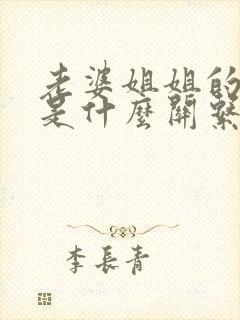 老婆姐姐的
是什麼關繫
李長青